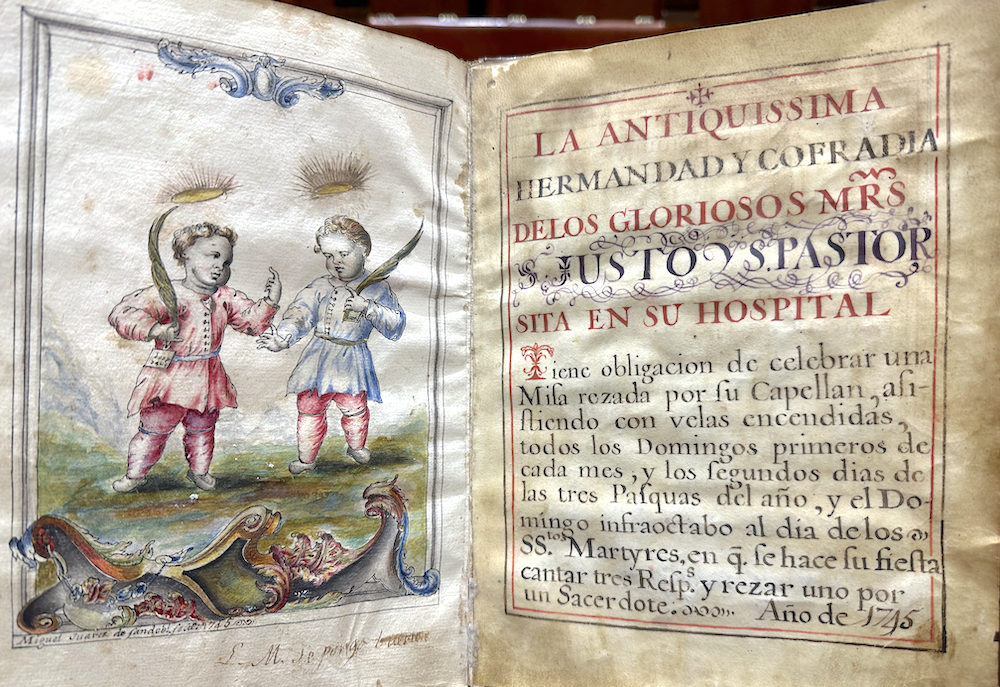 Miguel Suarez de Sandobl. fecit 1745
L. M. de
LA ANTIQUISSIMA
HERMANDAD Y COFRADIA
DELOS GLORIOSOS MRS.
S. JUSTO Y S. PASTOR
SITA EN SU HOSPITAL
Tiene obligacion de celebrar una
Miſa rezada por ſu Capellan, aſi-
ſtiendo con velas encendidas,
todos los Domingos primeros de
cada mes, y los ſegundos dias de
las tres Paſquas del año, y el Do-
mingo infraoctabo al dia de los
SS.tos Martyres, en q̄. se hace su fiesta
cantar tres Resp.s y rezar uno por
un Sacerdote. Año de 1745